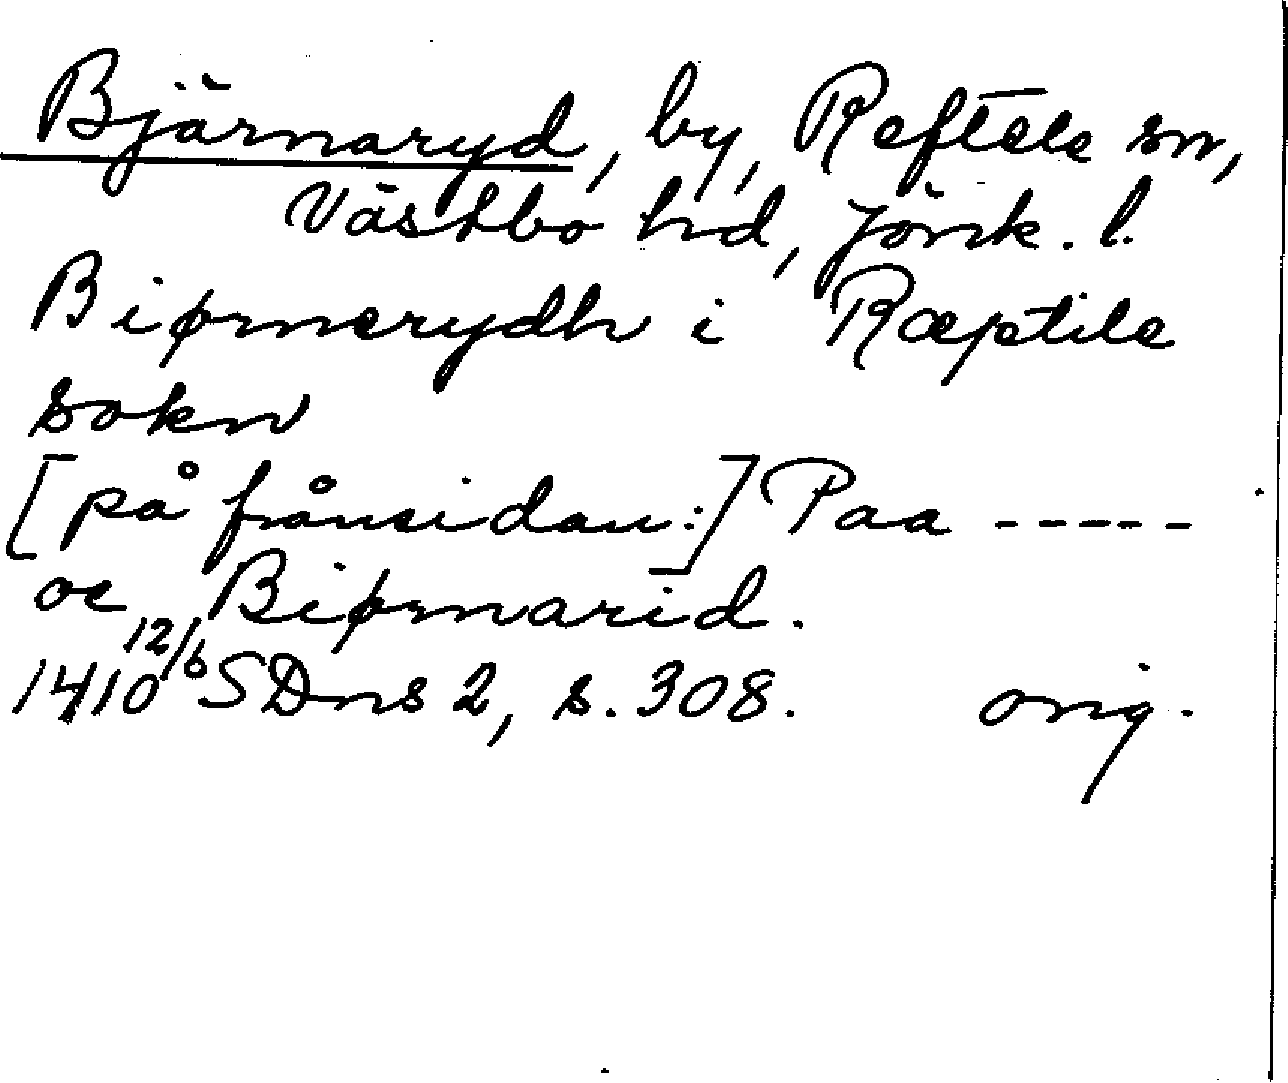 Bjärnaryd, by, Reftele sn,
Västbo hd, Jönk. l.
Biørnerydh i Ræptile
sokn
[på frånsidan:] Paa -----
oc Biørnarid.
1410 12/6 SDns 2, s. 308. orig.